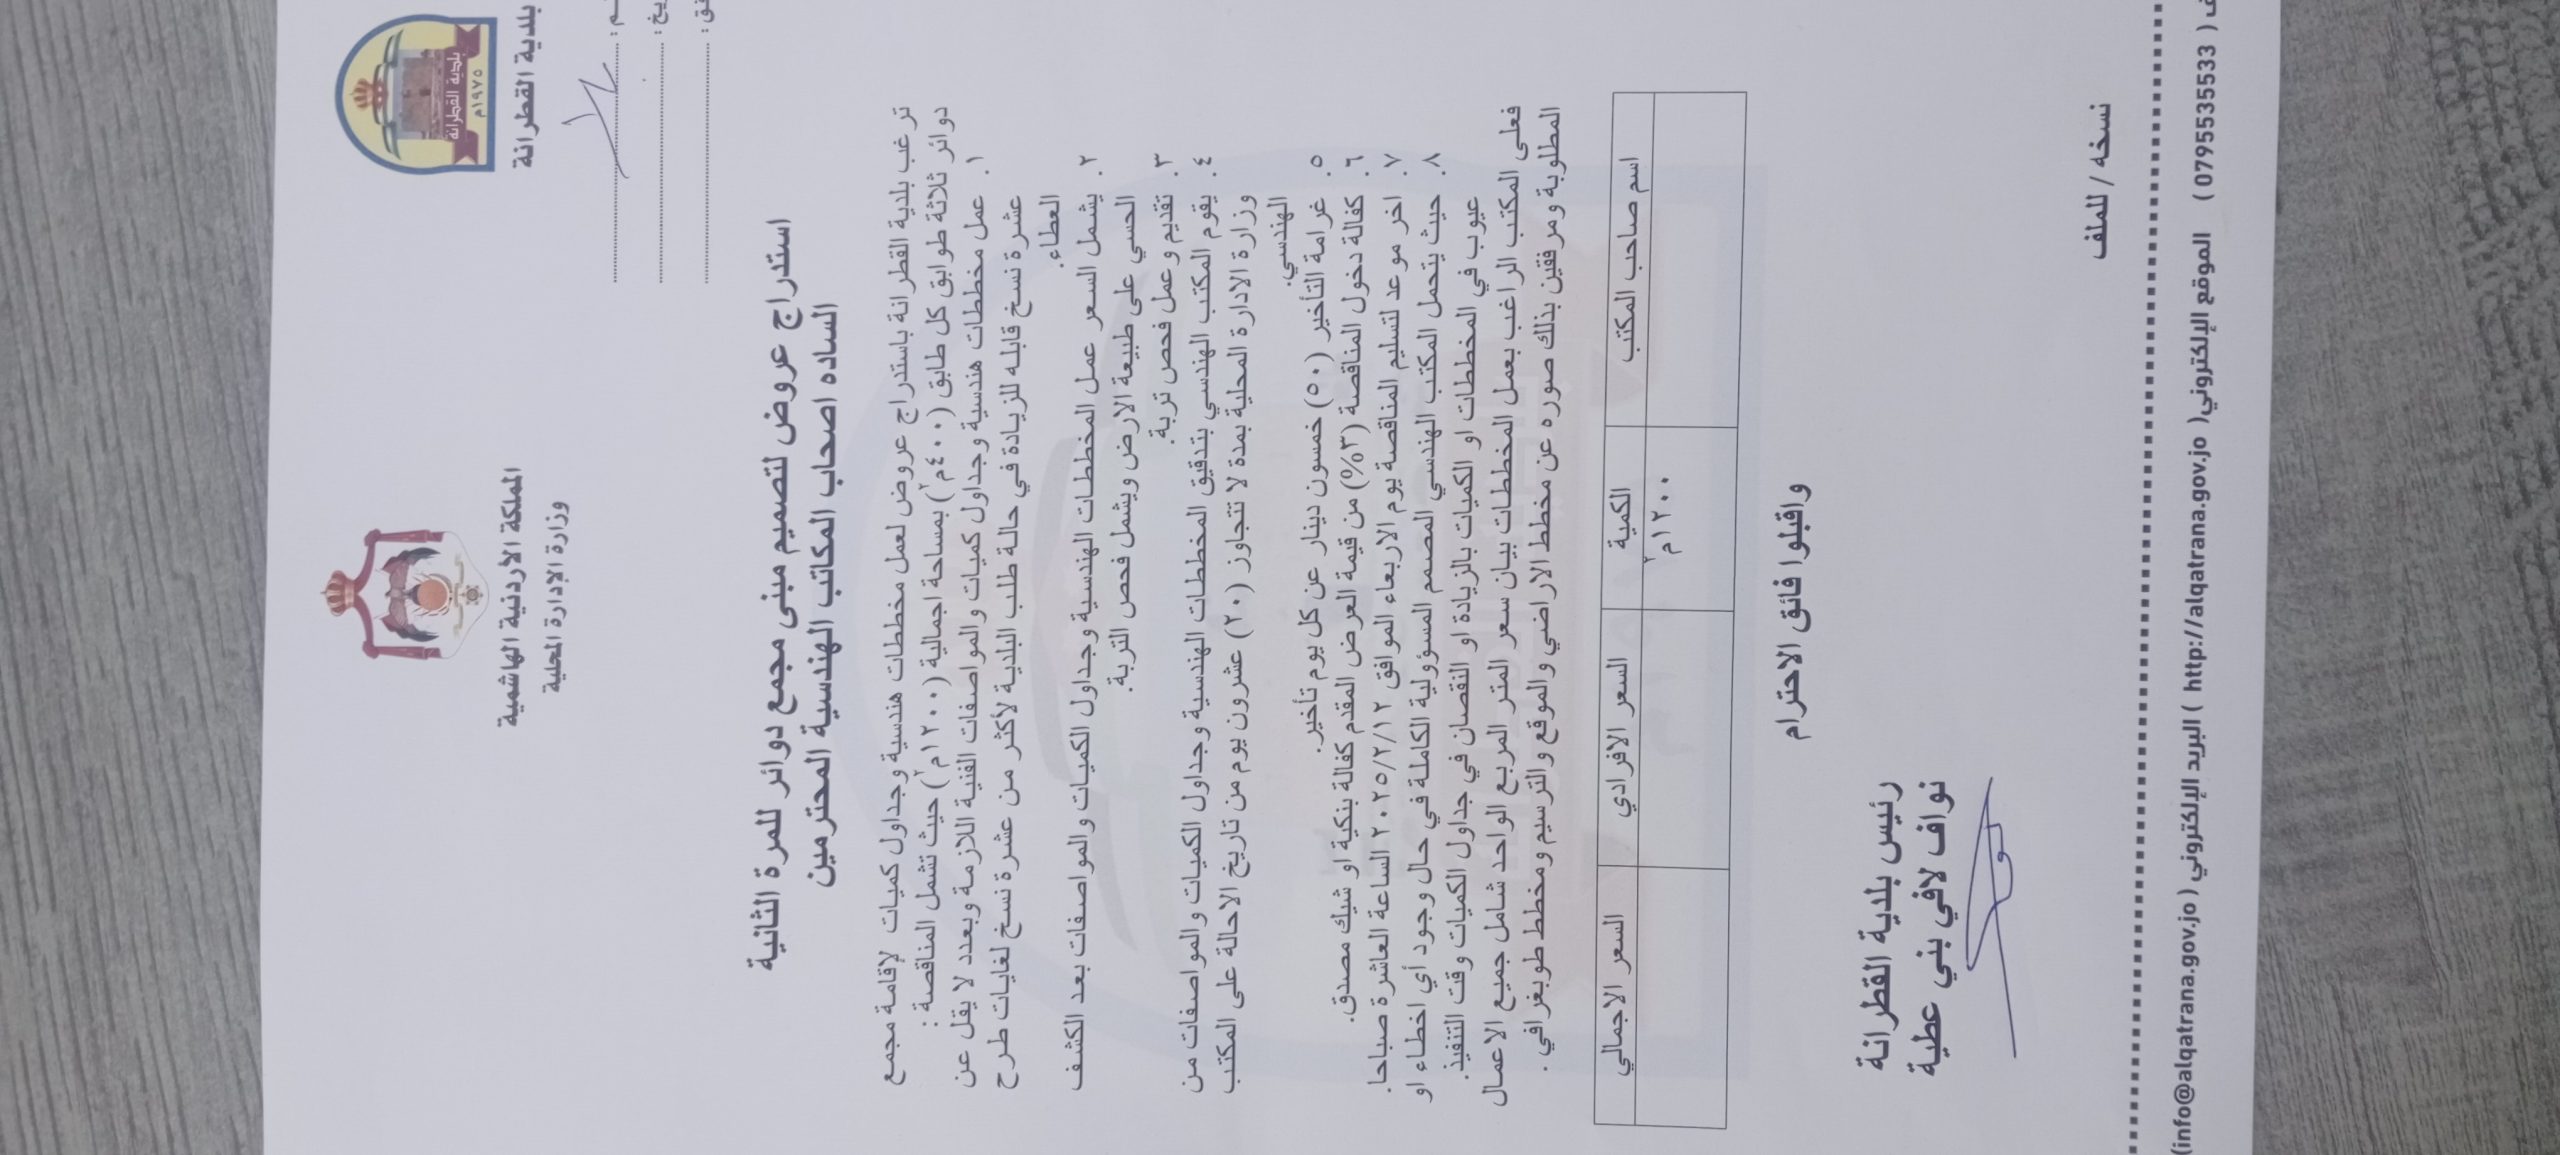 المملكة الأردنية الهاشمية
وزارة الإدارة المحلية
بلدية القطرانة
١٩٧٥م
بلدية القطرانة
استدراج عروض لتصميم مبنى مجمع دوائر للمرة الثانية
الساده اصحاب المكاتب الهندسية المحترمين
ترغب بلدية القطرانة باستدراج عروض لعمل مخططات هندسية وجداول كميات لإقامة مجمع
دوائر ثلاثة طوابق كل طابق (٤٠٠م٢) بمساحة اجمالية (١٢٠٠م٢) حيث تشمل المناقصة :
١. عمل مخططات هندسية وجداول كميات والمواصفات الفنية اللازمة وبعدد لا يقل عن
عشرة نسخ قابله للزيادة في حالة طلب البلدية لأكثر من عشرة نسخ لغايات طرح
العطاء.
٢. يشمل السعر عمل المخططات الهندسية وجداول الكميات والمواصفات بعد الكشف
الحسي على طبيعة الارض ويشمل فحص التربة.
٣. تقديم وعمل فحص تربة.
٤. يقوم المكتب الهندسي بتدقيق المخططات الهندسية وجداول الكميات والمواصفات من
وزارة الادارة المحلية بمدة لا تتجاوز (٢٠) عشرون يوم من تاريخ الاحالة على المكتب
الهندسي.
٥. غرامة التأخير (٥٠) خمسون دينار عن كل يوم تأخير.
٦. كفالة دخول المناقصة (٣%) من قيمة العرض المقدم كفالة بنكية او شيك مصدق.
٧. اخر موعد لتسليم المناقصة يوم الاربعاء الموافق ٢٠٢٥/٢/١٢ الساعة العاشرة صباحا.
٨. حيث يتحمل المكتب الهندسي المصمم المسؤولية الكاملة في حال وجود أي اخطاء او
عيوب في المخططات او الكميات بالزيادة او النقصان في جداول الكميات وقت التنفيذ.
فعلى المكتب الراغب بعمل المخططات بيان سعر المتر المربع الواحد شامل جميع الاعمال
المطلوبة ومرفقين بذلك صوره عن مخطط الاراضي والموقع والترسيم ومخطط طوبغرافي .
اسم صاحب المكتب الكمية السعر الافرادي السعر الاجمالي
١٢٠٠م٢
واقبلوا فائق الاحترام
رئيس بلدية القطرانة
نواف لافي بني عطية
نسخه / للملف
( 0795535533 ) الموقع الإلكتروني( http://alqatrana.gov.jo ) البريد الإلكتروني (info@alqatrana.gov.jo)